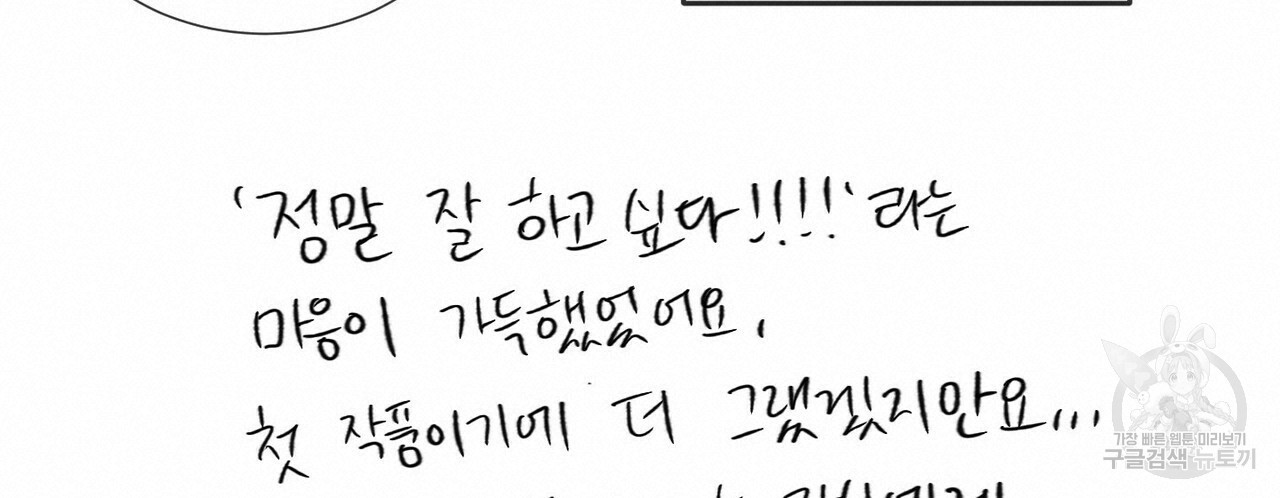 '정말 잘 하고 싶다!!!!' 라는
마음이 가득했었어요.
첫 작품이기에 더 그랬겠지만요...
가장 빠른 웹툰 미리보기
구글검색 뉴토끼